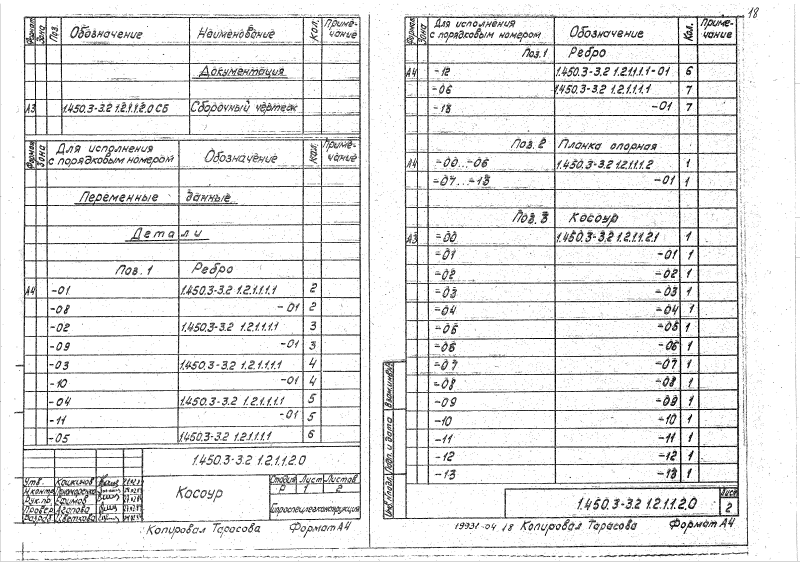 18
Формат Зона Поз. Обозначение Наименование Кол. Приме-чание
Документация
А3 1.450.3-3.2 1.2.1.1.2.0 СБ Сборочный чертеж
Формат Зона Для исполнения с порядковым номером Обозначение Кол. Приме-чание
Переменные данные
Детали
Поз. 1 Ребро
А4 -01 1.450.3-3.2 1.2.1.1.1.1 2
-08 -01 2
-02 1.450.3-3.2 1.2.1.1.1.1 3
-09 -01 3
-03 1.450.3-3.2 1.2.1.1.1.1 4
-10 -01 4
-04 1.450.3-3.2 1.2.1.1.1.1 5
-11 -01 5
-05 1.450.3-3.2 1.2.1.1.1.1 6
1.450.3-3.2 1.2.1.1.2.0
Утв.
Н.контр.
Рук.пр. Ефимов
Провер. Агапова
Разраб. Цветкова
Косоур
Стадия Лист Листов
Р 1 2
Гипроспецлегконструкция
Копировал Тарасова Формат А4
Формат Зона Для исполнения с порядковым номером Обозначение Кол. Приме-чание
Поз. 1 Ребро
А4 -12 1.450.3-3.2 1.2.1.1.1.1-01 6
-06 1.450.3-3.2 1.2.1.1.1.1 7
-13 -01 7
Поз. 2 Планка опорная
А4 -00...-06 1.450.3-3.2 1.2.1.1.1.2 1
-07...-13 -01 1
Поз. 3 Косоур
А3 -00 1.450.3-3.2 1.2.1.1.2.1 1
-01 -01 1
-02 -02 1
-03 -03 1
-04 -04 1
-05 -05 1
-06 -06 1
-07 -07 1
-08 -08 1
-09 -09 1
-10 -10 1
-11 -11 1
-12 -12 1
-13 -13 1
Инв.№подл. Подп. и дата Взам.инв.№
1.450.3-3.2 1.2.1.1.2.0
Лист
2
19931-04 18 Копировал Тарасова Формат А4